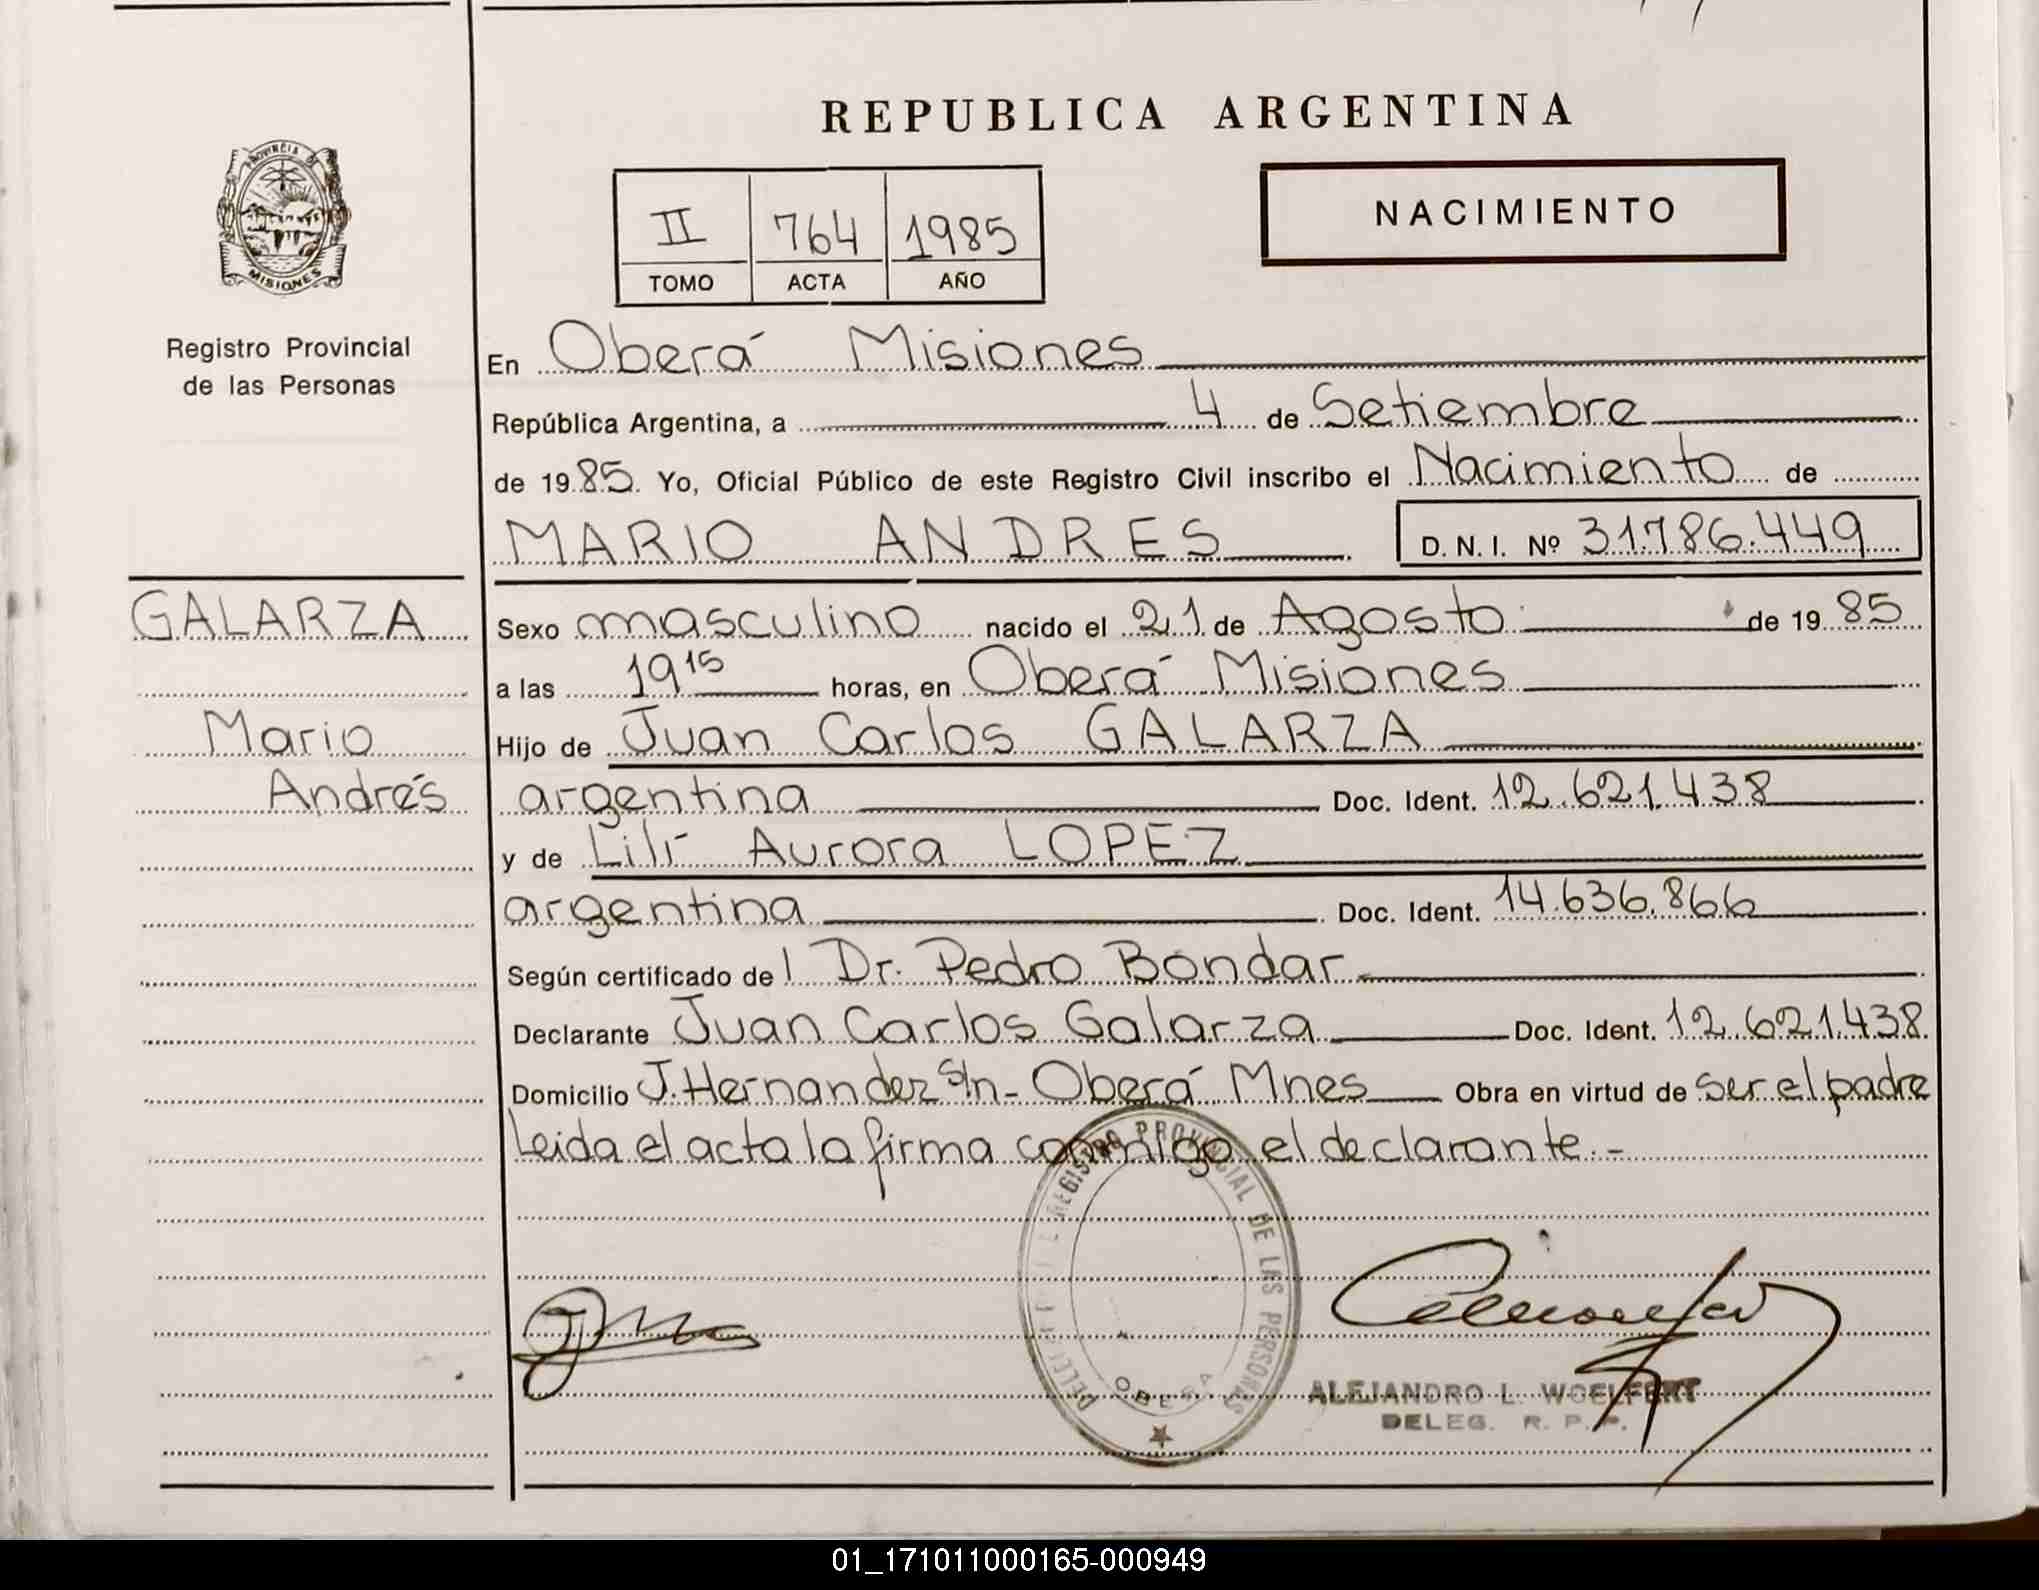 REPUBLICA ARGENTINA
PROVINCIA DE
MISIONES
Registro Provincial
de las Personas
II 764 1985
TOMO ACTA AÑO
NACIMIENTO
En Oberá Misiones
República Argentina, a 4 de Setiembre
de 1985. Yo, Oficial Público de este Registro Civil inscribo el Nacimiento de
MARIO ANDRES D. N. I. Nº 31.786.449
GALARZA
Mario
Andrés
Sexo masculino nacido el 21 de Agosto de 1985
a las 19 15 horas, en Oberá Misiones
Hijo de Juan Carlos GALARZA
argentina Doc. Ident. 12.621.438
y de Lilí Aurora LOPEZ
argentina Doc. Ident. 14.636.866
Según certificado del Dr. Pedro Bondar
Declarante Juan Carlos Galarza Doc. Ident. 12.621.438
Domicilio J. Hernandez s/n - Oberá Mnes Obra en virtud de ser el padre
Leida el acta la firma conmigo el declarante.-
REGISTRO PROVINCIAL DE LAS PERSONAS
OBERA
ALEJANDRO L. WOELFERT
DELEG. R. P. P.
01_171011000165-000949